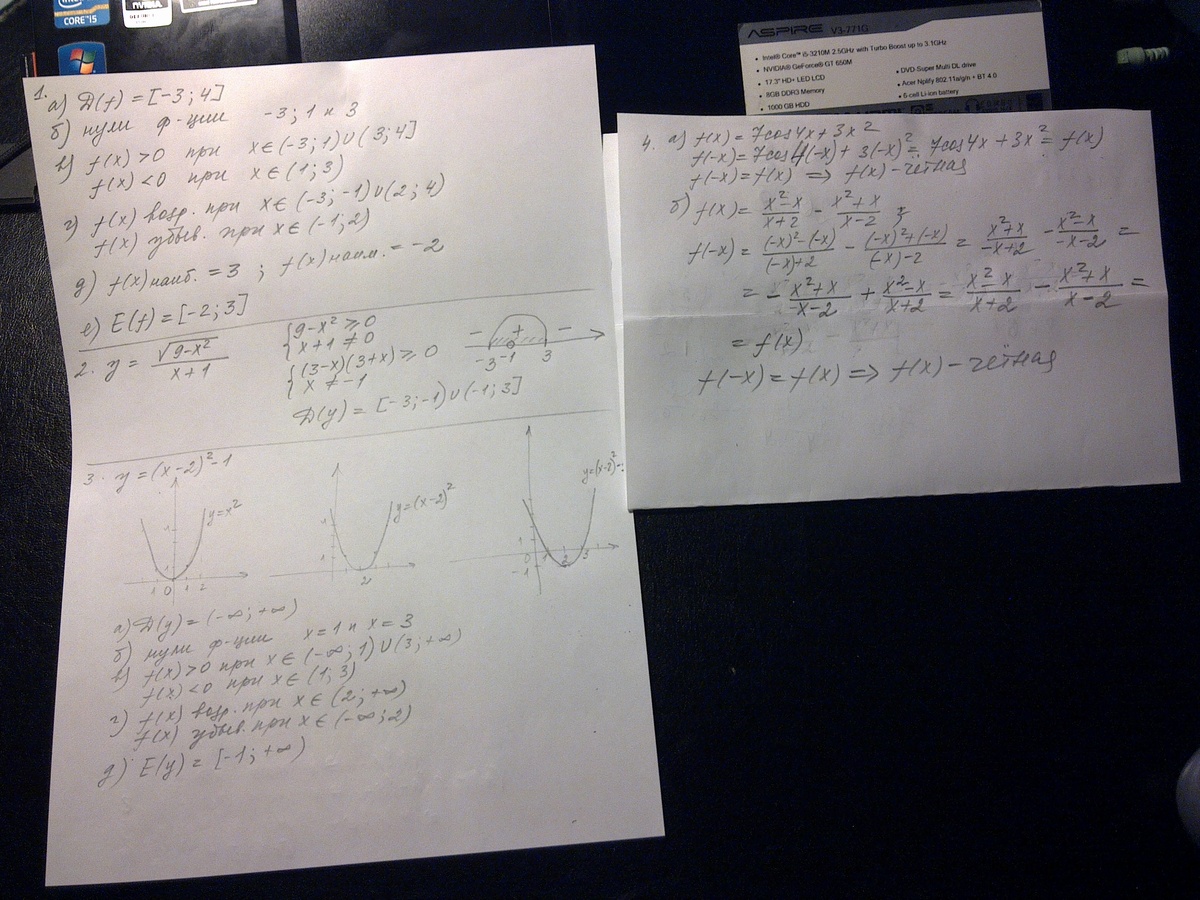 CORE i5
NVIDIA
ASPIRE V3-771G
• Intel® Core™ i5-3210M 2.5GHz with Turbo Boost up to 3.1GHz
• NVIDIA® GeForce® GT 650M
• 17.3" HD+ LED LCD
• 8GB DDR3 Memory
• 1000 GB HDD
• DVD-Super Multi DL drive
• Acer Nplify 802.11a/g/n + BT 4.0
• 6-cell Li-ion battery
1. а) D(f) = [-3; 4]
б) нули ф-ции -3; 1 и 3
в) f(x) > 0 при x∈(-3; 1)∪(3; 4]
f(x) < 0 при x∈(1; 3)
г) f(x) возр. при x∈(-3; -1)∪(2; 4)
f(x) убыв. при x∈(-1; 2)
д) f(x) наиб. = 3 ; f(x) наим. = -2
е) E(f) = [-2; 3]
2. y = √(9-x²)/(x+1)
{9-x² ≥ 0
{x+1 ≠ 0
{(3-x)(3+x) ≥ 0
{x ≠ -1
D(y) = [-3; -1)∪(-1; 3]
− + −
-3 -1 3
3. y = (x-2)² - 1
y=x²
1
1 0 1 2
y=(x-2)²
1
2
y=(x-2)²-
1
0 1 2 3
-1
а) D(y) = (-∞; +∞)
б) нули ф-ции x = 1 и x = 3
в) f(x) > 0 при x∈(-∞; 1)∪(3; +∞)
f(x) < 0 при x∈(1; 3)
г) f(x) возр. при x∈(2; +∞)
f(x) убыв. при x∈(-∞; 2)
д) E(y) = [-1; +∞)
4. а) f(x) = 7cos4x + 3x²
f(-x) = 7cos4(-x) + 3(-x)² = 7cos4x + 3x² = f(x)
f(-x) = f(x) ⇒ f(x) - чётная
б) f(x) = (x²-x)/(x+2) - (x²+x)/(x-2) ;
f(-x) = ((-x)²-(-x))/((-x)+2) - ((-x)²+(-x))/((-x)-2) = (x²+x)/(-x+2) - (x²-x)/(-x-2) =
= - (x²+x)/(x-2) + (x²-x)/(x+2) = (x²-x)/(x+2) - (x²+x)/(x-2) =
= f(x)
f(-x) = f(x) ⇒ f(x) - чётная